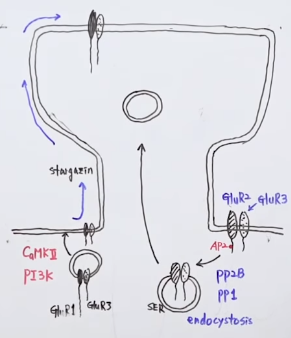 stargazin
CaMKII
PI3K
GluR1
GluR3
GluR2
GluR3
AP2
PP2B
PP1
SER
endocystosis